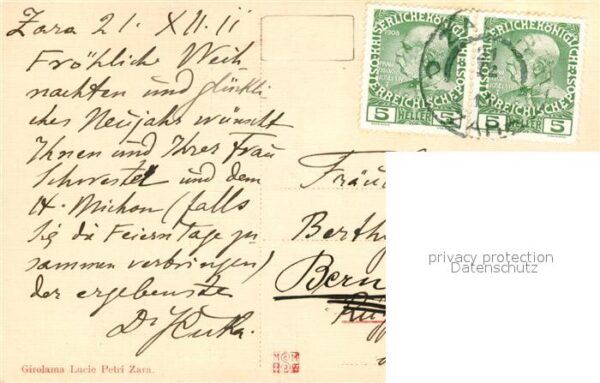 Zara 21. XII. 11
Fröhliche Weih-
nachten und glückli-
ches Neujahr wünscht
Ihnen und Ihrer Frau
Schwester und dem
H. Michon (falls
Sie die Feiertage zu
sammen verbringen)
der ergebenste
Dr
Girolama Lucie Petri Zara.
1908
KAISERLICHE KÖNIGLICHE
ÖSTERREICHISCHE POST
5 HELLER 5
1908
KAISERLICHE KÖNIGLICHE
ÖSTERREICHISCHE POST
5 HELLER 5
ZARA
Fräu
Berth
Bern
privacy protection
Datenschutz